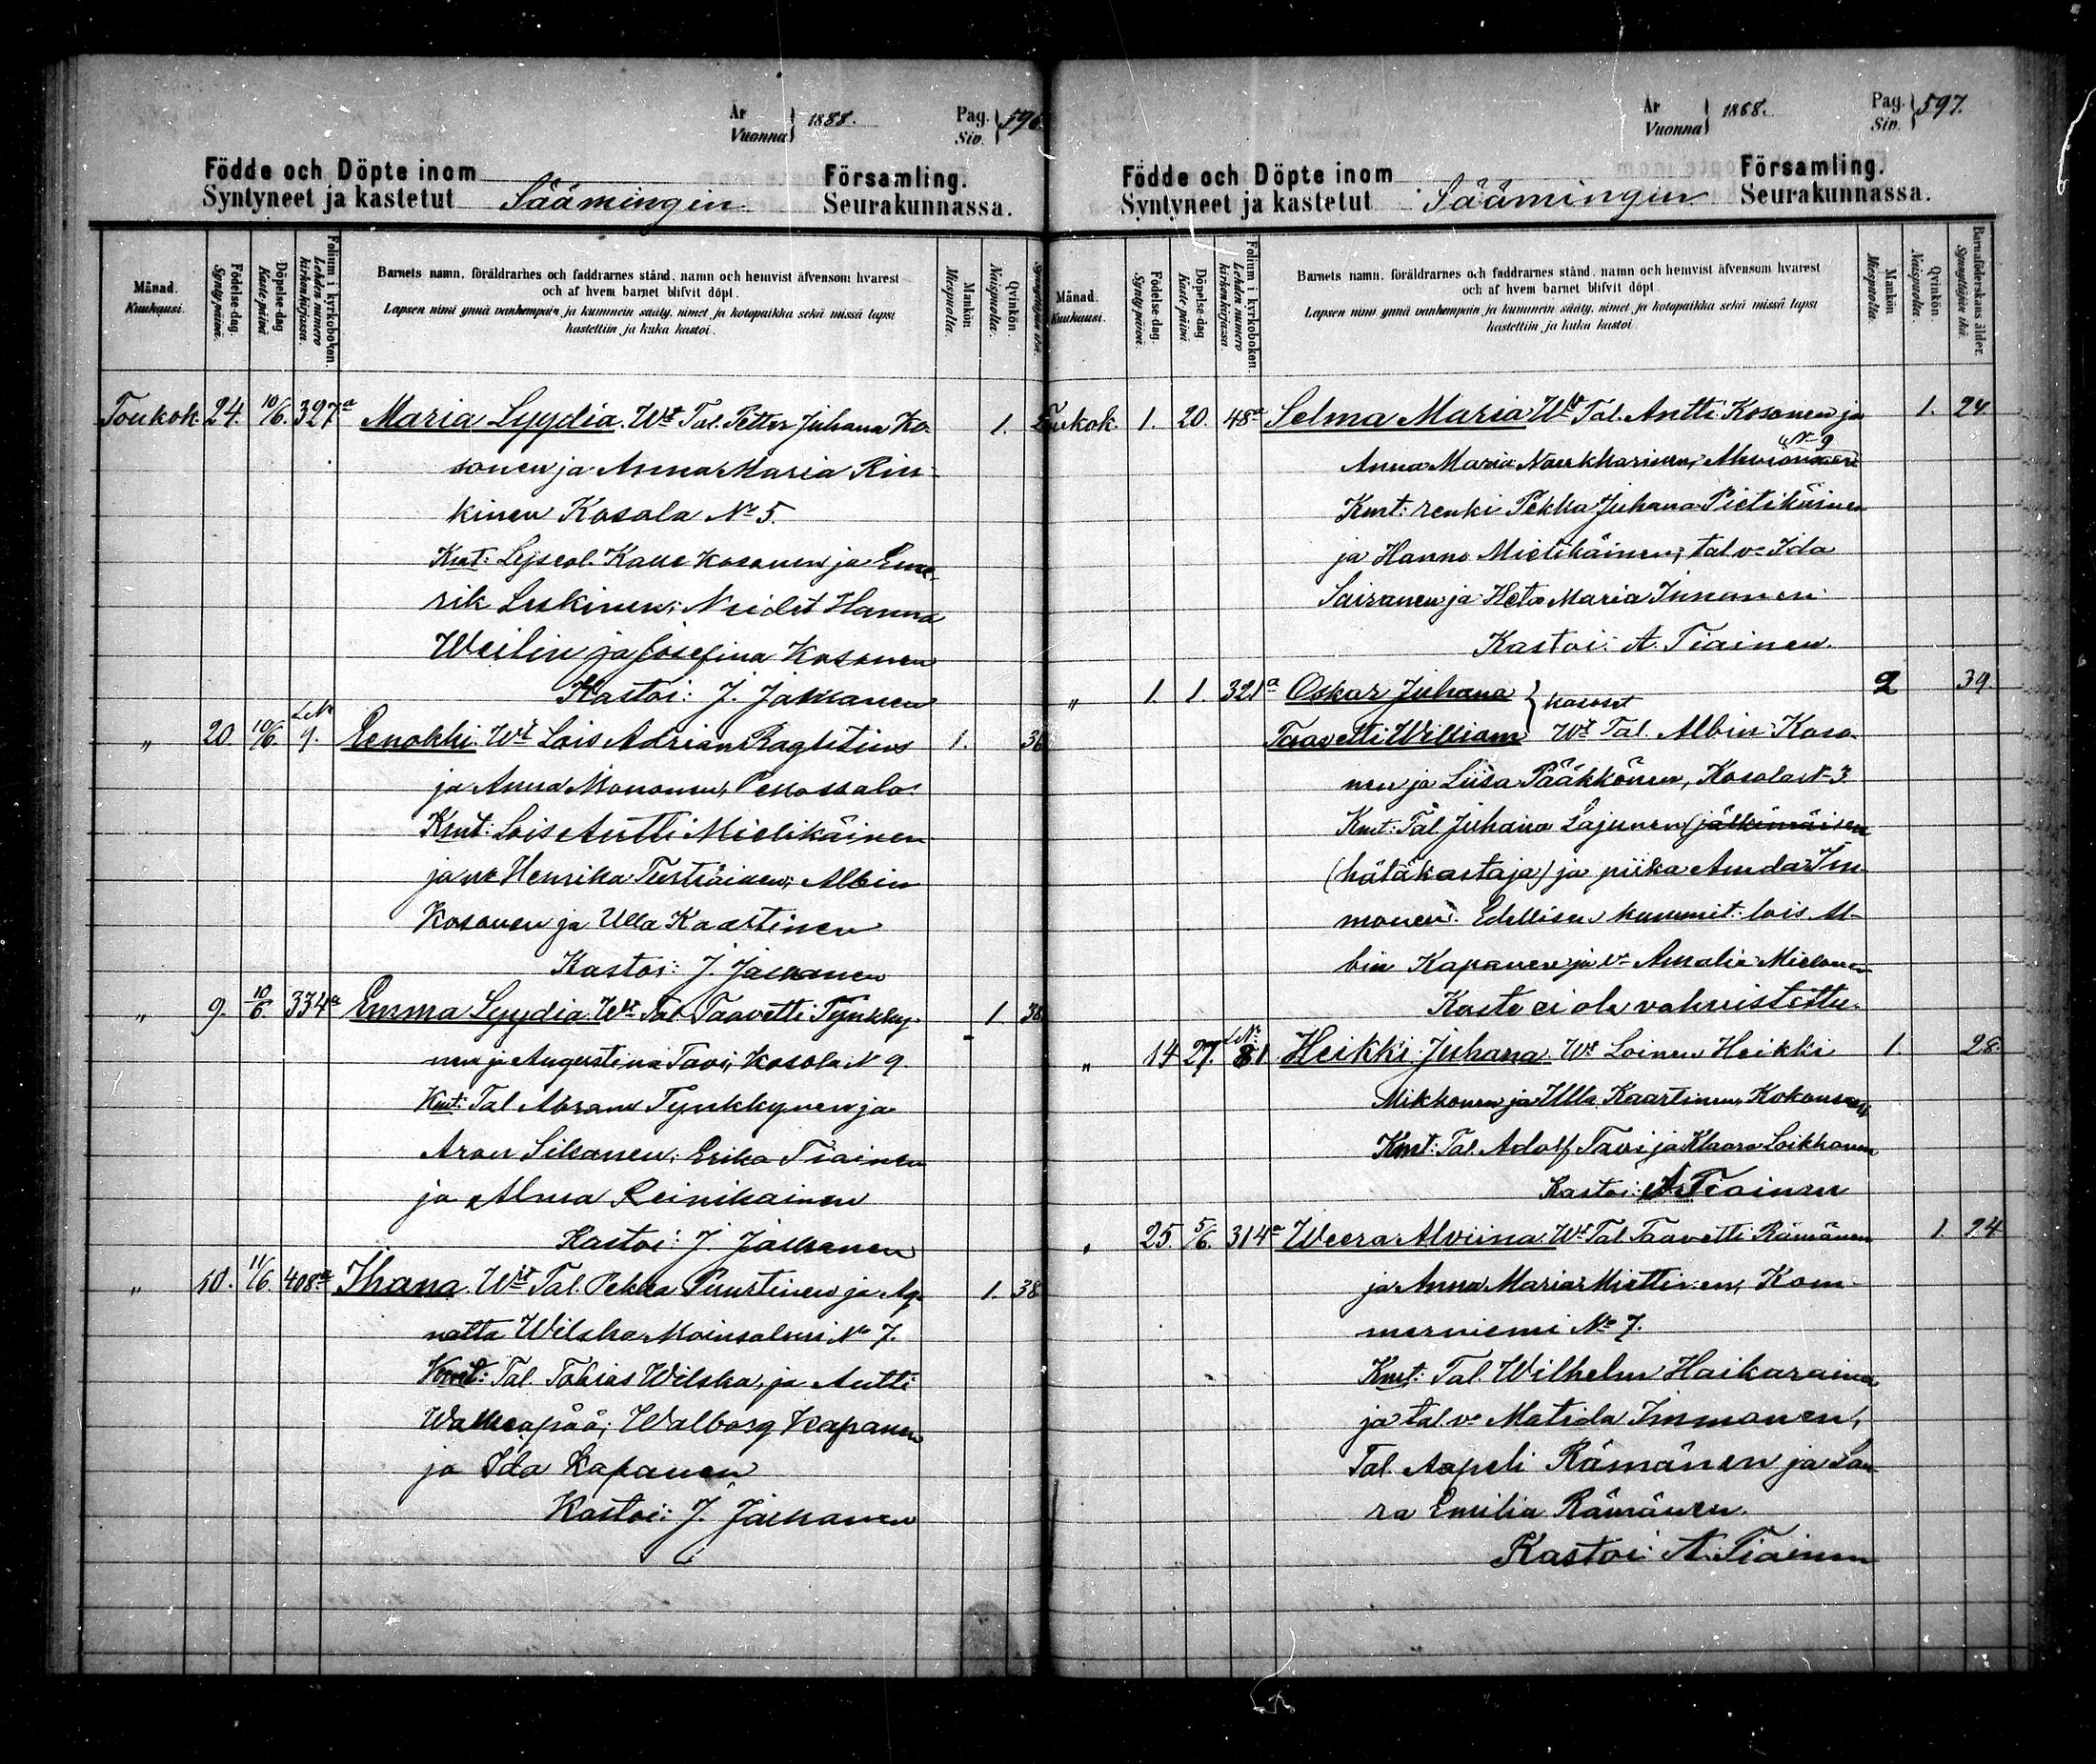 År
Vuonna } 1888.
Pag.
Siv. } 596.
Födde och Döpte inom
Syntyneet ja kastetut Säämingin
Församling.
Seurakunnassa.
Månad.
Kuukausi.
Födelse-dag.
Synty-päivä.
Döpelse-dag
Kaste-päivä
Folium i kyrkoboken.
Lehden numero kirkonkirjassa.
Barnets namn, föräldrarnes och faddrarnes stånd, namn och hemvist äfvensom hvarest
och af hvem barnet blifvit döpt.
Lapsen nimi ynnä vanhempain ja kummein sääty, nimet ja kotopaikka sekä missä lapsi
kastettiin ja kuka kastoi.
Mankön.
Miespuolia.
Qvinkön.
Naispuolia.
Toukok. 24. 10/6. 327a Maria Lyydia. Wt Tal. Petter Juhana Ko- 1.
sonen ja Anna Maria Rin-
kinen Kosola No 5.
Kmt: Kosonen ja Eme-
rik Leskinen; Neidet Hanna
Weilin ja Josefina Kosonen
Kastoi: J. Jakkanen
" 20. 10/6. LN 9. Eenokki. Wt Lois Adrian Raglitius 1. 36
ja Anna Mononen,
Kmt: Lois Antti Mielikäinen
ja Henrika Tustiainen; Albin
Kosonen ja Ulla Kaartinen
Kastoi: J. Jakkanen
" 9. 10/6. 334a Emma Lyydia. Wt Tal. Taavetti Tynkky- 1. 38
nen ja Augustina Tavi, Kosola N 9.
Kmt: Tal Abram Tynkkynen ja
Aron Silvanen; Erika Tiainen
ja Alma Reinikainen
Kastoi: J. Jakkanen
" 10. 11/6. 408a Ihana. Wt Tal. Pekka Puustinen ja Ag- 1. 38
natta Wilska Moinsalmi No 7.
Kmt: Tal. Tobias Wilska, ja Antti
Walkeapää; Walborg Kapanen
ja Ida Kapanen
Kastoi: J. Jakkanen
År
Vuonna } 1888.
Pag.
Siv. } 597.
Födde och Döpte inom
Syntyneet ja kastetut Säämingin
Församling.
Seurakunnassa.
Månad.
Kuukausi.
Födelse-dag.
Synty-päivä.
Döpelse-dag
Kaste-päivä
Folium i kyrkoboken.
Lehden numero kirkonkirjassa.
Barnets namn, föräldrarnes och faddrarnes stånd, namn och hemvist äfvensom hvarest
och af hvem barnet blifvit döpt.
Lapsen nimi ynnä vanhempain ja kummein sääty, nimet ja kotopaikka sekä missä lapsi
kastettiin ja kuka kastoi.
Mankön
Miespuolia.
Qvinkön.
Naispuolia.
Barnaföderskans ålder.
Synnyttäjän ikä.
Toukok 1. 20. 48a Selma Maria Wt Tal. Antti Kosonen ja 1. 24
N 9
Anna Maria
Kmt: renki Pekka Juhana Pietikäinen
ja Hanno Mielikäinen; tal v. Ida
Saisanen ja Heta Maria Immonen
Kastoi: A. Tiainen.
" 1. 1. 321a Oskar Juhana } kaksoset 2 39.
Taavetti William Wt Tal. Albin Koso-
nen ja Liisa Pääkkönen, Kosola N 3
Kmt: Tal Juhana Lajunen (jälkimäisen
(hätäkastaja) ja piika Amda Im-
monen. Edellisen kummit: lois Al-
bin Kapanen ja v. Amalia Mielonen
Kaste ei ole vahvistettu.
" 14 27. LN: 81 Heikki Juhana Wt Loinen Heikki 1. 28.
Mikkonen ja Ulla Kaartinen,
Kmt: Tal. Adolf Tavi ja Klaara Loikkanen
Kastoi: A. Tiainen
" 25. 5/6. 314a Weera Alviina Wt Tal Taavetti Rämänen 1. 24
ja Anna Maria Miettinen, Kom-
merniemi No 7.
Kmt: Tal Wilhelm Haikarainen
ja tal. v. Matida Immonen;
Tal. Aapeli Rämänen ja Saa-
ra Emilia Rämänen.
Kastoi: A. Tiainen